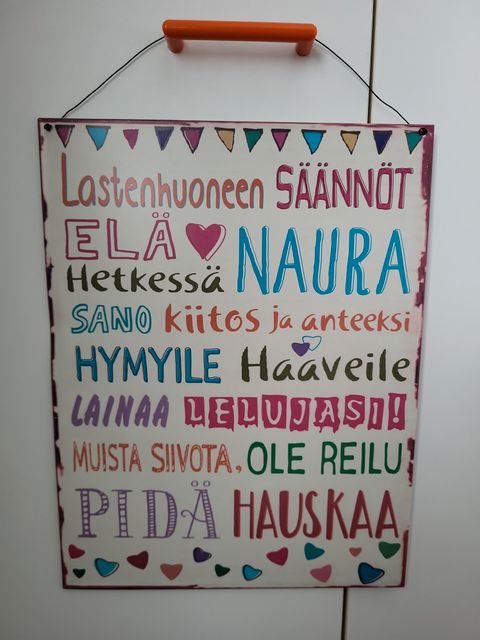 Lastenhuoneen SÄÄNNÖT
ELÄ
Hetkessä NAURA
SANO kiitos ja anteeksi
HYMYILE Haaveile
LAINAA LELUJASI!
MUISTA SIIVOTA, OLE REILU
PIDÄ HAUSKAA